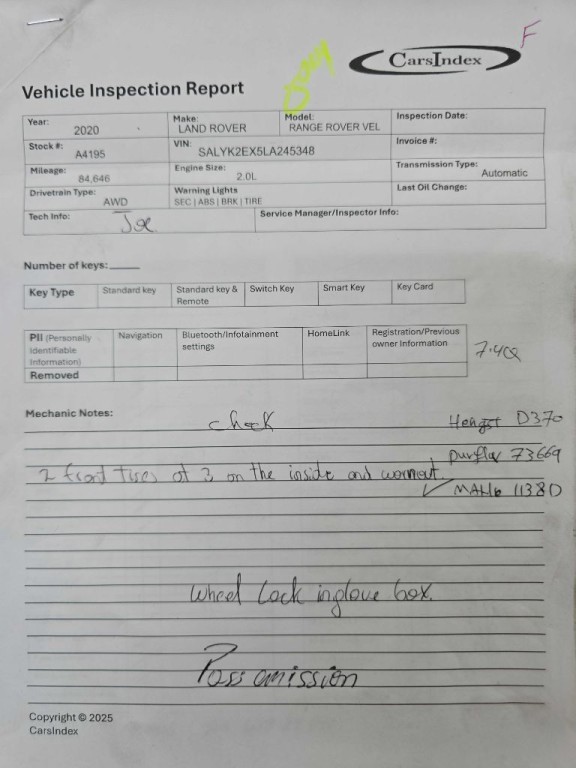 F
CarsIndex
Vehicle Inspection Report
Year: 2020
Make: LAND ROVER
Model: RANGE ROVER VEL
Inspection Date:
Stock #: A4195
VIN: SALYK2EX5LA245348
Invoice #:
Mileage: 84,646
Engine Size: 2.0L
Transmission Type: Automatic
Drivetrain Type: AWD
Warning Lights SEC | ABS | BRK | TIRE
Last Oil Change:
Tech Info: Joe
Service Manager/Inspector Info:
Number of keys:
Key Type Standard key Standard key & Remote Switch Key Smart Key Key Card
PII (Personally Identifiable Information) Navigation Bluetooth/Infotainment settings HomeLink Registration/Previous owner Information
Removed
7.4Q
Mechanic Notes:
check
Hengst D370
Purflux 73669
2 front tires at 3 on the inside and wornout.
MAHle 1138D
Wheel Lock inglove box.
Pass omission
Copyright © 2025
CarsIndex